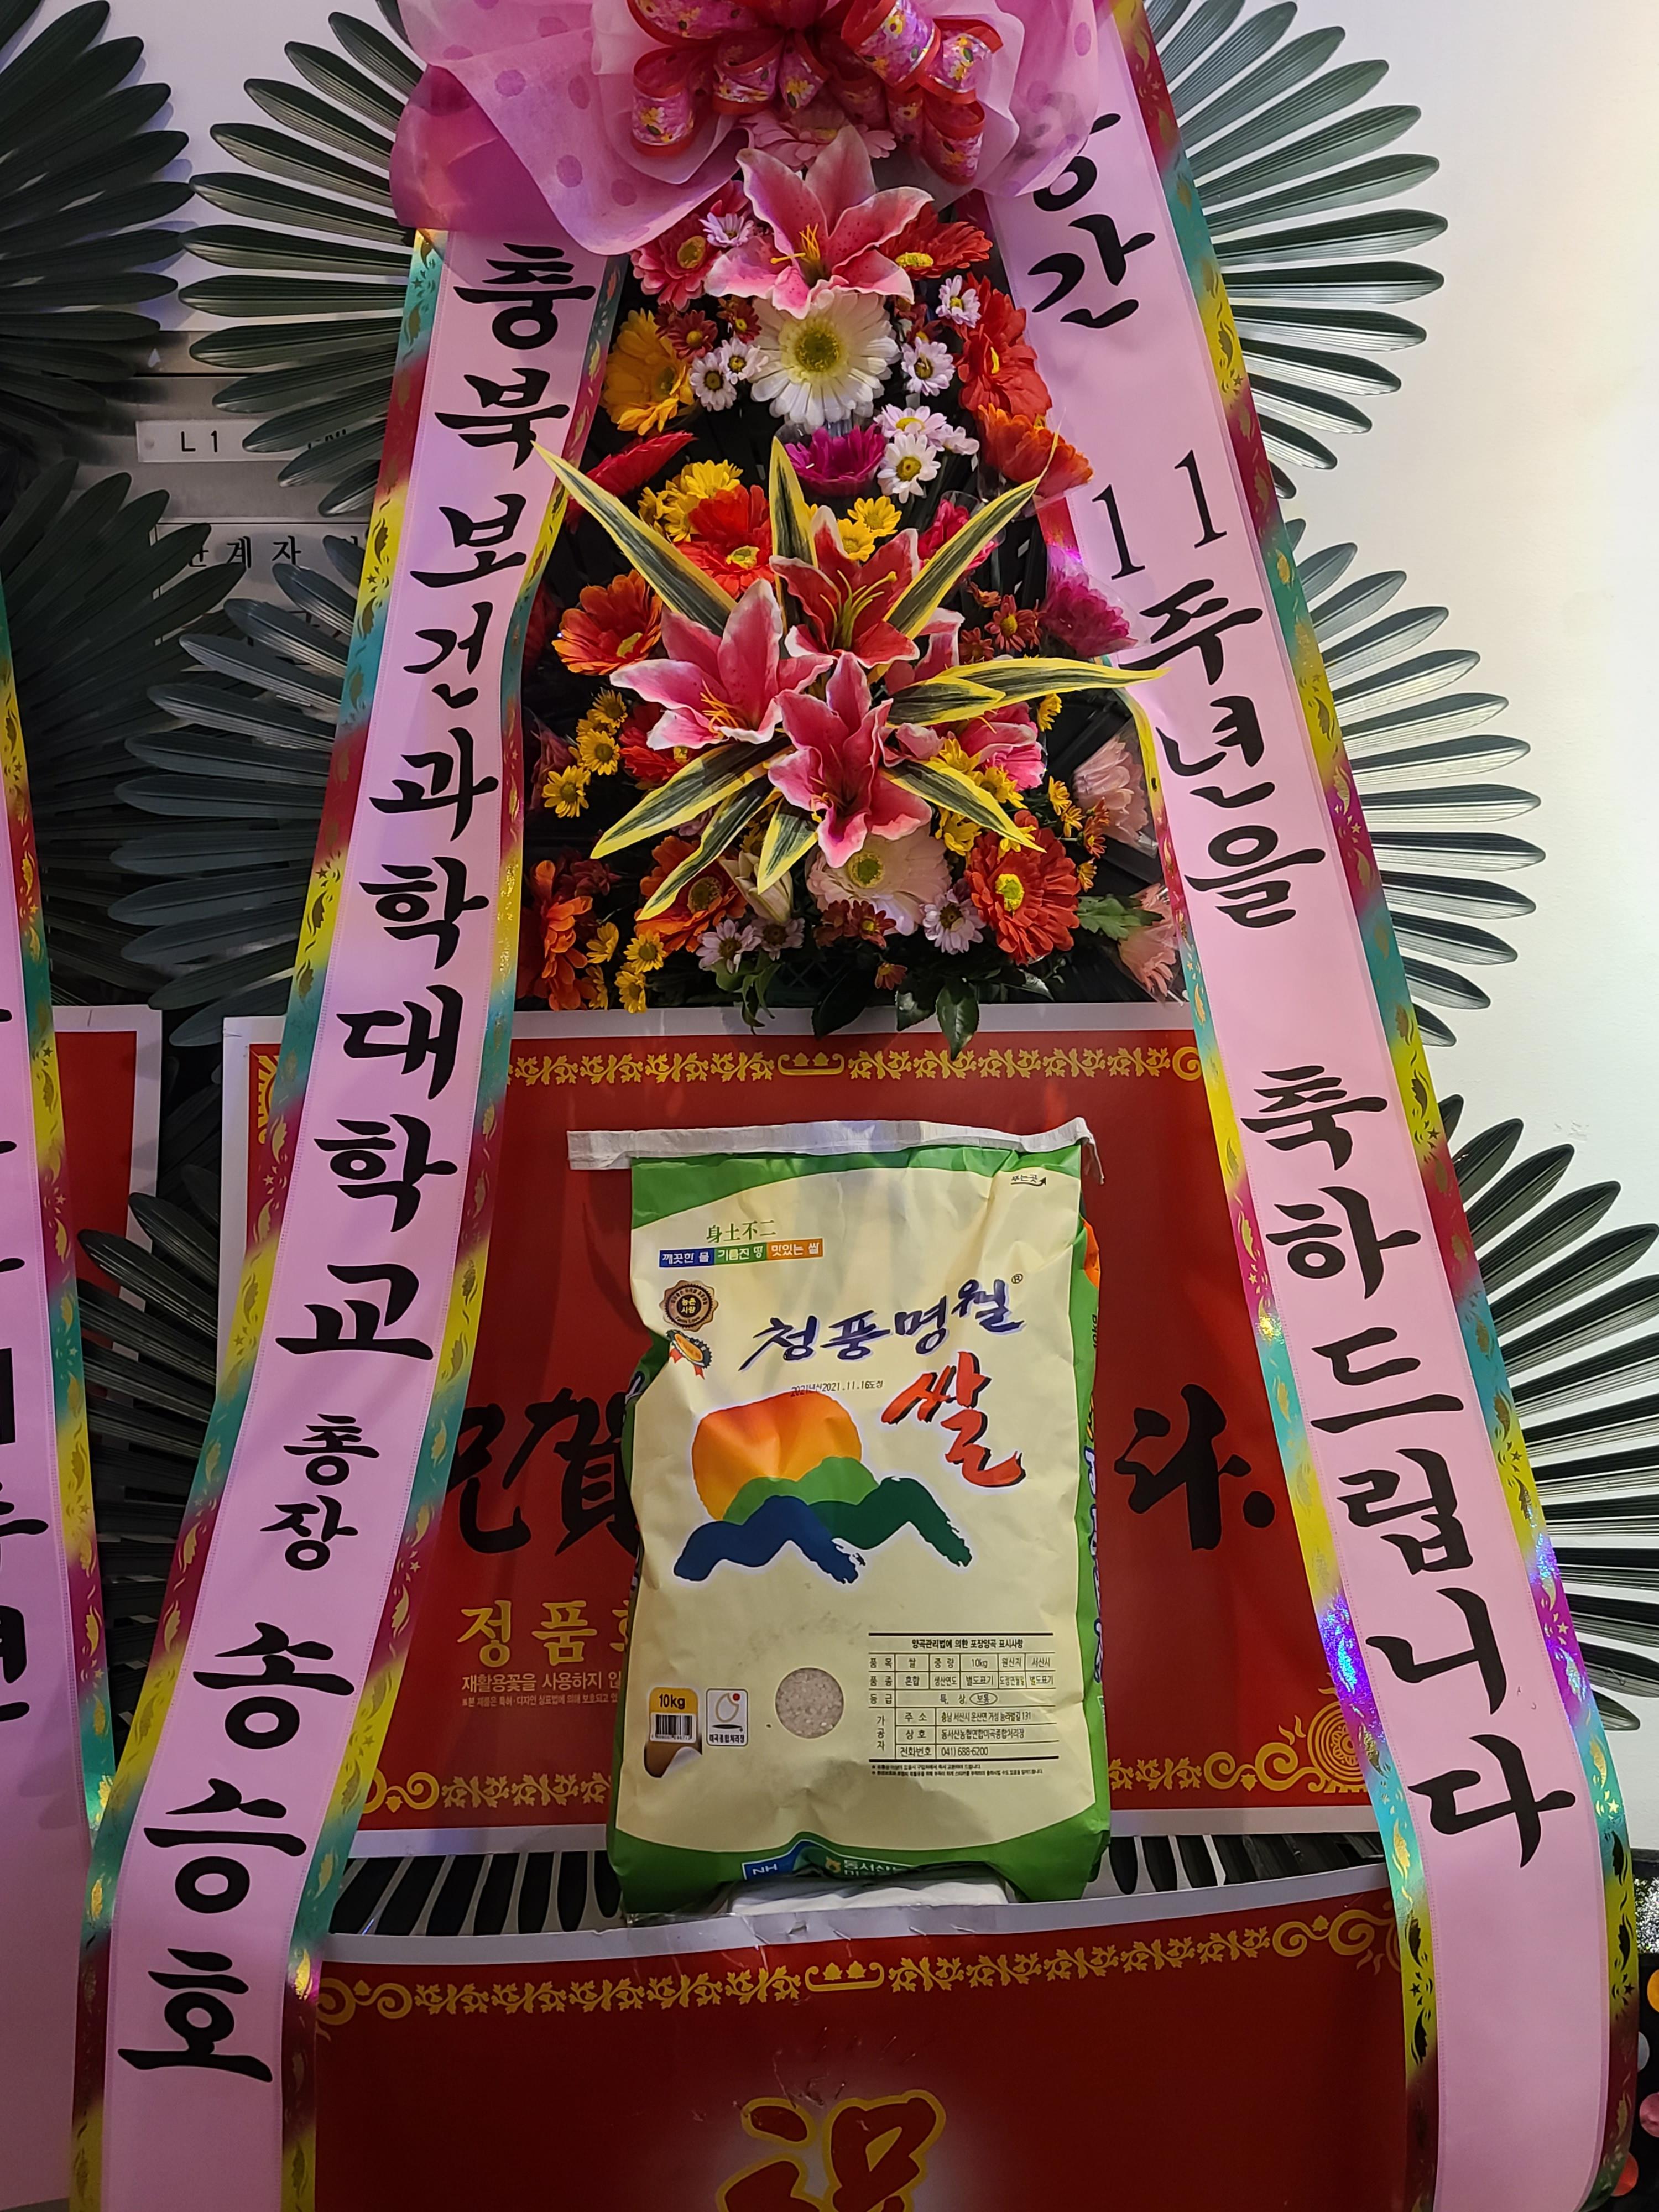 충북보건과학대학교 총장 송승호
창간 11주년을 축하드립니다
L1
관계자
身土不二
깨끗한 물 기름진 땅 맛있는 쌀
푸는곳
농촌사랑
청풍명월®
쌀
2021년산2021.11.16도정
祝賀
다.
정품화
재활용꽃을 사용하지 않
10kg
미곡종합처리장
양곡관리법에 의한 포장양곡 표시사항
품 목 쌀 중 량 10kg 원산지 서산시
품 종 혼합 생산연도 별도표기 도정연월일 별도표기
등 급 특, 상, 보통
가공자 주 소 충남 서산시 운산면 거성
상 호 동서산농협연합미곡종합처리장
전화번호 041) 688-6200
NH
동서산
祝